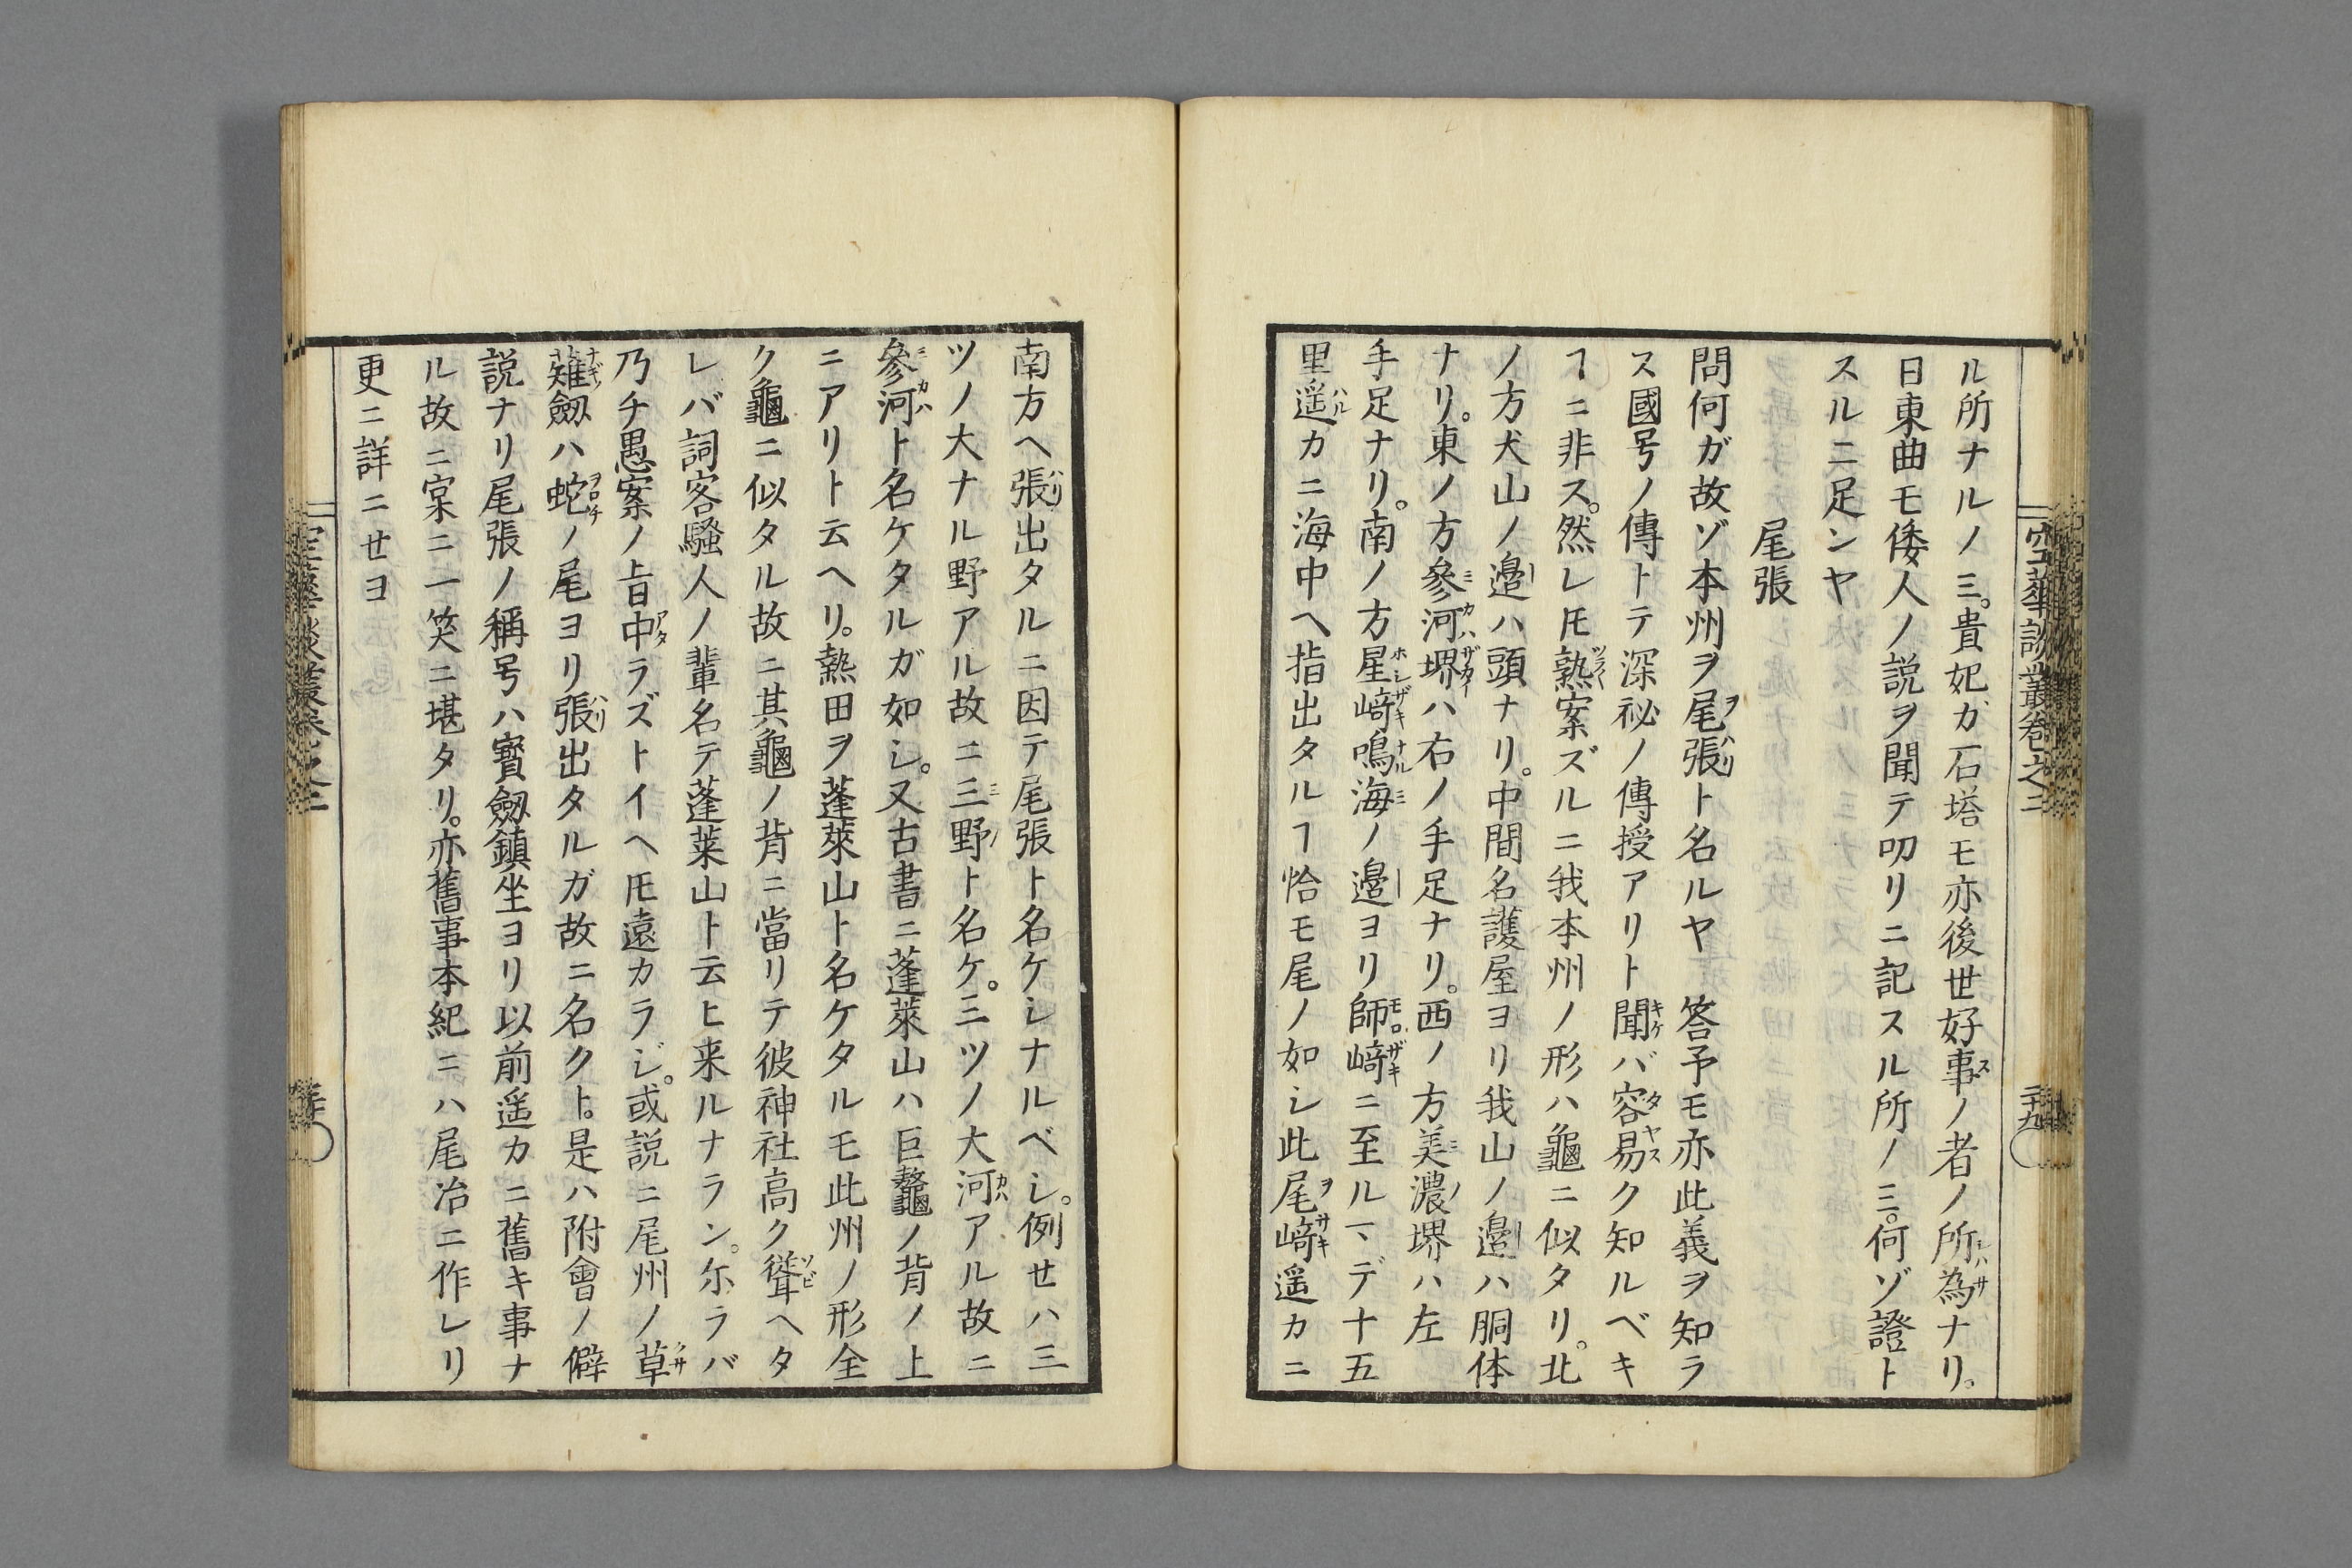 空華談叢卷之二
二十九
ル所ナルノミ。貴妃ガ石塔モ亦後世好事ノ者ノ所為ナリ。
日東曲モ倭人ノ説ヲ聞テ叨リニ記スル所ノミ。何ゾ證ト
スルニ足ンヤ
尾張
問何ガ故ゾ本州ヲ尾張ト名ルヤ 答予モ亦此義ヲ知ラ
ス國号ノ傳トテ深祕ノ傳授アリト聞バ容易ク知ルベキ
ヿニ非ス。然レ𪜈熟案ズルニ我本州ノ形ハ龜ニ似タリ。北
ノ方犬山ノ邉ハ頭ナリ。中間名護屋ヨリ我山ノ邉ハ胴体
ナリ。東ノ方參河堺ハ右ノ手足ナリ。西ノ方美濃堺ハ左
手足ナリ。南ノ方星﨑鳴海ノ邉ヨリ師﨑ニ至ルマデ十五
里遥カニ海中ヘ指出タルヿ恰モ尾ノ如シ此尾﨑遥カニ
南方ヘ張出タルニ因テ尾張ト名ケシナルベシ。例セハ三
ツノ大ナル野アル故ニ三野ト名ケ。三ツノ大河アル故ニ
參河ト名ケタルガ如シ。又古書ニ蓬萊山ハ巨鼇ノ背ノ上
ニアリト云ヘリ。熱田ヲ蓬萊山ト名ケタルモ此州ノ形全
ク龜ニ似タル故ニ其龜ノ背ニ當リテ彼神社高ク聳ヘタ
レバ詞客騷人ノ輩名テ蓬莱山ト云ヒ来ルナラン。尓ラバ
乃チ愚案ノ旨中ラズトイヘ𪜈遠カラジ。或説ニ尾州ノ草
薙劔ハ蛇ノ尾ヨリ張出タルガ故ニ名クト。是ハ附會ノ僻
説ナリ尾張ノ稱号ハ寳劔鎮坐ヨリ以前遥カニ舊キ事ナ
ル故ニ寔ニ一笑ニ堪タリ。亦舊事本紀ニハ尾治ニ作レリ
更ニ詳ニセヨ
空華談叢卷之二